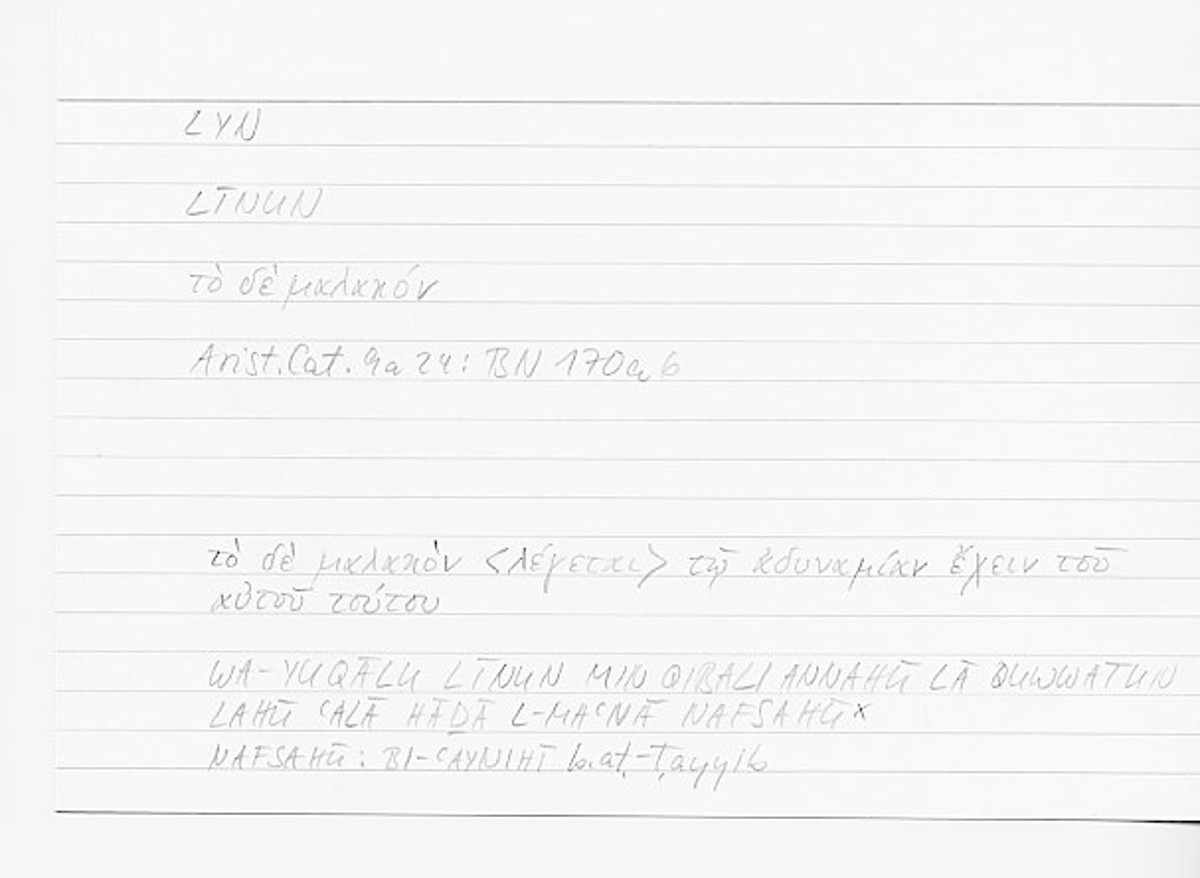 LYN
LĪNUN
τὸ δὲ μαλακόν
Arist. Cat. 9a 24: BN 170a, 6
τὸ δὲ μαλακὸν <λέγεται> τῷ ἀδυναμίαν ἔχειν τοῦ
αὐτοῦ τούτου
WA-YUQĀLU LĪNUN MIN QIBALI ANNAHŪ LĀ QUWWATUN
LAHŪ ʿALĀ HĀḎĀ L-MAʿNĀ NAFSAHŪ×
NAFSAHŪ: BI-ʿAYNIHĪ b.aṭ-Ṭayyib